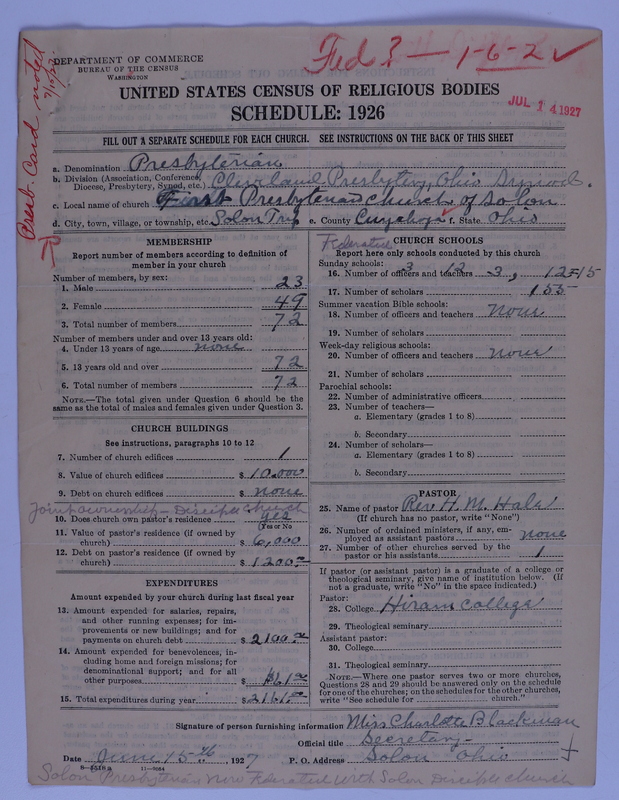 Fed 3 — 1-6-2 ✓
Presb. Card noted
DEPARTMENT OF COMMERCE
BUREAU OF THE CENSUS
WASHINGTON
UNITED STATES CENSUS OF RELIGIOUS BODIES
SCHEDULE: 1926
JUL 14 1927
FILL OUT A SEPARATE SCHEDULE FOR EACH CHURCH. SEE INSTRUCTIONS ON THE BACK OF THIS SHEET
a. Denomination Presbyterian
b. Division (Association, Conference, Diocese, Presbytery, Synod, etc.) Cleveland Presbytery, Ohio Synod.
c. Local name of church First Presbyterian church of Solon
d. City, town, village, or township, etc. Solon Twp e. County Cuyahoga f. State Ohio
MEMBERSHIP
Report number of members according to definition of
member in your church
Number of members, by sex:
1. Male 23
2. Female 49
3. Total number of members 72
Number of members under and over 13 years old:
4. Under 13 years of age none
5. 13 years old and over 72
6. Total number of members 72
NOTE.—The total given under Question 6 should be
same as the total of males and females given under Question 3.
CHURCH BUILDINGS
See instructions, paragraphs 10 to 12
7. Number of church edifices 1
8. Value of church edifices $ 10.000
9. Debt on church edifices $ none
Joint ownership — Disciple church
10. Does church own pastor's residence yes
(Yes or No)
11. Value of pastor's residence (if owned by
church) $ 6,000
12. Debt on pastor's residence (if owned by
church) $ 1200
EXPENDITURES
Amount expended by your church during last fiscal year
13. Amount expended for salaries, repairs,
and other running expenses; for im-
provements or new buildings; and for
payments on church debt $ 2100
14. Amount expended for benevolences, in-
cluding home and foreign missions; for
denominational support; and for all
other purposes $ 61
15. Total expenditures during year $ 2161
Federated
CHURCH SCHOOLS
Report here only schools conducted by this church
Sunday schools:
16. Number of officers and teachers 3, 12 15
17. Number of scholars 155
Summer vacation Bible schools:
18. Number of officers and teachers none
19. Number of scholars
Week-day religious schools:
20. Number of officers and teachers none
21. Number of scholars
Parochial schools:
22. Number of administrative officers
23. Number of teachers—
a. Elementary (grades 1 to 8)
b. Secondary
24. Number of scholars—
a. Elementary (grades 1 to 8)
b. Secondary
PASTOR
25. Name of pastor Rev. H. M. Hale
(If church has no pastor, write "None")
26. Number of ordained ministers, if any, em-
ployed as assistant pastors none
27. Number of other churches served by the
pastor or his assistants 1
If pastor (or assistant pastor) is a graduate of a college or
theological seminary, give name of institution below. (If
not a graduate, write "No" in the space indicated.)
Pastor:
28. College Hiram College
29. Theological seminary
Assistant pastor:
30. College
31. Theological seminary
NOTE.—Where one pastor serves two or more churches,
Questions 28 and 29 should be answered only on the schedule
for one of the churches; on the schedules for the other churches,
write "See schedule for church."
Signature of person furnishing information Miss Charlotte Blackman
Official title Secretary
Date June 15 th, 1927 P. O. Address Solon Ohio
8—4516 a
Solon Presbyterian now Federated with Solon Disciple church